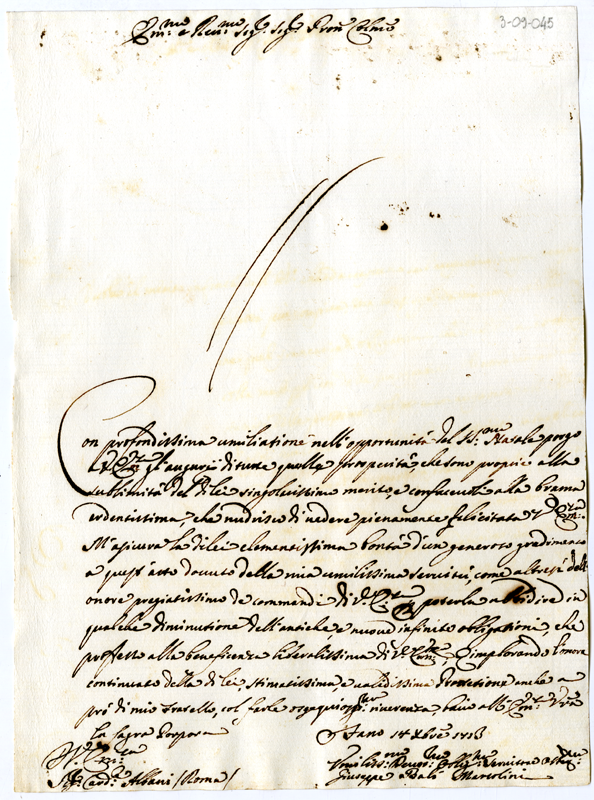 3-09-045
Em.mo e Rev.mo Sig.r Sig.r Pron Colmo
Con profondissima umiliatione nell'opportunità del SS.mo Natale porgo
a V. Em.za gl'augurii di tutte quelle prosperità, che sono proprie alla
sublimità del di lei singolarissimo merito, e confacevole alla brama
ardentissima, che nudrisco di vedere pienamente felicitata V. Em.za
M'assicura la di lei clementissima bontà d'un generoso gradimento
a quest'atto dovuto della mia umilissima servitù, come altresì dell'
onore pregiatissimo de commandi di V. Em.za per poterla obbidire in
qualche diminutione dell'antiche, e nuove infinite obligationi, che
professo alla beneficenza liberalissima di V. Em.za, Implorando l'onore
continuato della di lei stimatissima, e validissima Protettione anche a
prò di mio fratello, col farle ossequiosissima riverenza, bacio all'Em.za Vra
la sagra Porpora
Fano 14 Xbre 1713
V. Em.za
S.r Card.l Albani (Roma)
Umiliss.mo Devot.mo Oblig.mo Servitore
Giuseppe Marcolini